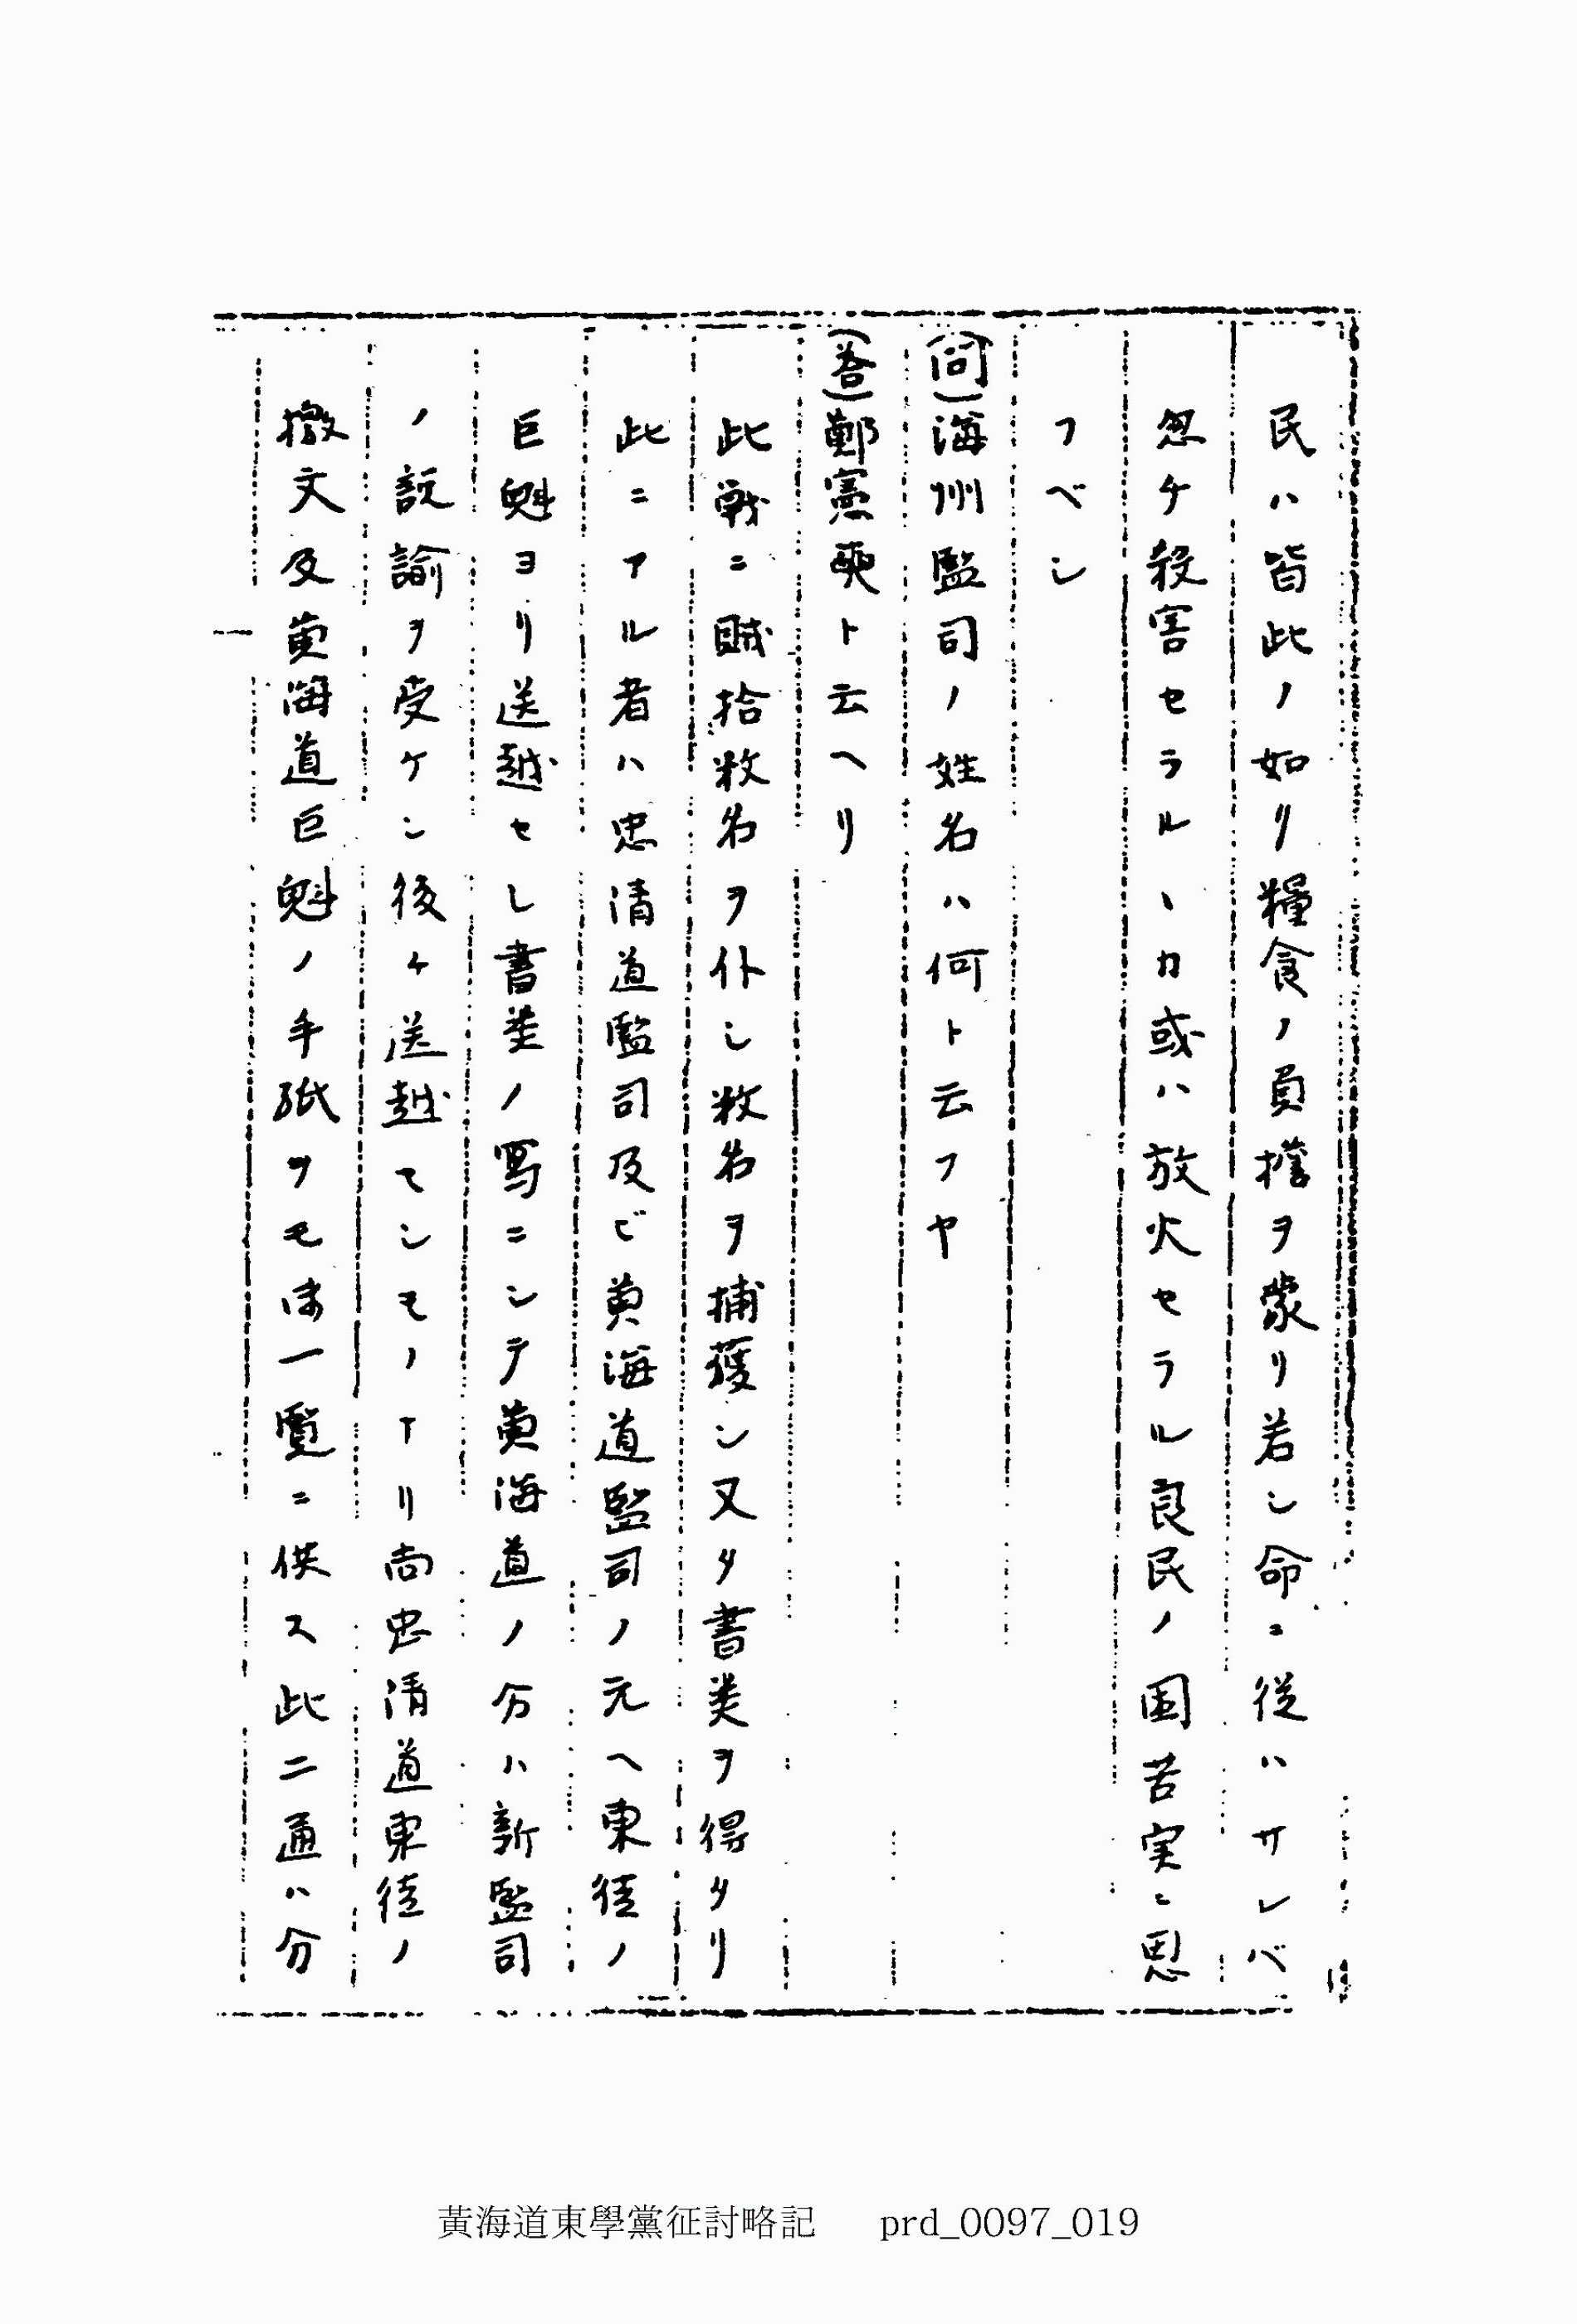 民ハ皆此ノ如リ糧食ノ負擔ヲ蒙リ若シ命ニ従ハサレバ
忽ケ殺害セラルヽカ或ハ放火セラル良民ノ困苦実ニ思
フベシ
(問)海州監司ノ姓名ハ何ト云フヤ
(答)鄭憲奭ト云ヘリ
此戦ニ賊拾数名ヲ仆し数名ヲ捕獲シ又タ書类ヲ得タリ
此ニアル者ハ忠清道監司及ビ黄海道監司ノ元ヘ東徒ノ
巨魁ヨリ送越セし書类ノ写ニシテ黄海道ノ分ハ新監司
ノ説諭ヲ受ケシ後ケ送越セシモノナリ尚忠清道東徒ノ
檄文及黄海道巨魁ノ手紙ヲモ一覧ニ供ス此二通ハ分
黃海道東學黨征討略記 prd_0097_019